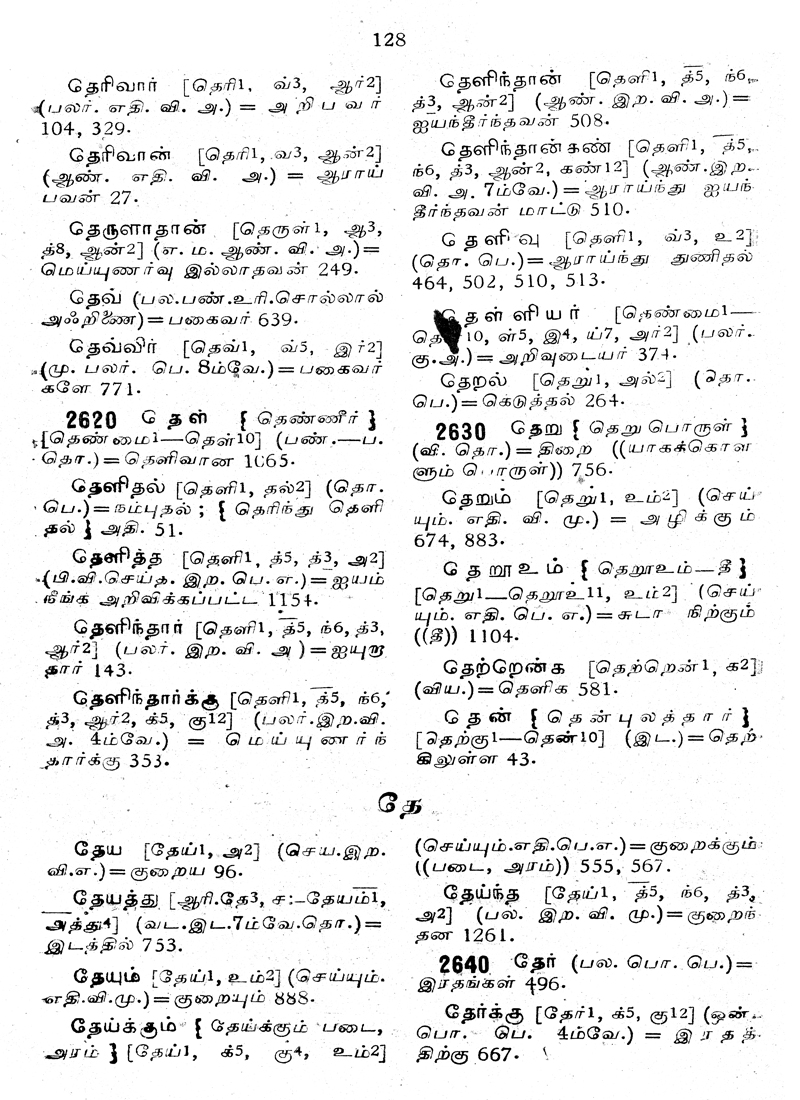 128
தெரிவார் [தெரி1, வ்3, ஆர்2]
(பலர். எதி. வி. அ.) = அ றி ப வ ர்
104, 329.
தெரிவான் [தெரி1, வ3, ஆன்2]
(ஆண். எதி. வி. அ.) = ஆராய்
பவன் 27.
தெருளாதான் [தெருள்1, ஆ3,
த்8, ஆன்2] (எ. ம. ஆண். வி. அ.)=
மெய்யுணர்வு இல்லாதவன் 249.
தெவ் (பல.பண்.உரி.சொல்லால்
அஃறிணை)=பகைவர் 639.
தெவ்விர் [தெவ்1, வ்5, இர்2]
(மு. பலர். பெ. 8ம்வே.)=பகைவர்
களே 771.
2620 தெள் { தெண்ணீர் }
[தெண்மை1—தெள்10] (பண்.—ப.
தொ.)=தெளிவான 1065.
தெளிதல் [தெளி1, தல்2] (தொ.
பெ.)=நம்புதல் ; { தெரிந்து தெளி
தல் } அதி. 51.
தெளித்த [தெளி1, த்5, த்3, அ2]
(பி.வி.செய்த. இற. பெ. எ.)=ஐயம்
நீங்க அறிவிக்கப்பட்ட 1154.
தெளிந்தார் [தெளி1, த்5, ந்6, த்3,
ஆர்2] (பலர். இற. வி. அ )=ஐயுறா
தார் 143.
தெளிந்தார்க்கு [தெளி1, த்5, ந்6,
த்3, ஆர்2, க்5, கு12] (பலர்.இற.வி.
அ. 4ம்வே.) = மெ ய் யு ண ர் ந்
தார்க்கு 353.
தெளிந்தான் [தெளி1, த்5, ந்6,
த்3, ஆன்2] (ஆண். இற. வி. அ.)=
ஐயந்தீர்ந்தவன் 508.
தெளிந்தான்கண் [தெளி1, த்5,
ந்6, த்3, ஆன்2, கண்12] (ஆண்.இற.
வி. அ. 7ம்வே.)=ஆராய்ந்து ஐயந்
தீர்ந்தவன் மாட்டு 510.
தெ ளி வு [தெளி1, வ்3, உ2]
(தொ. பெ.)=ஆராய்ந்து துணிதல்
464, 502, 510, 513.
தெ ள் ளி யர் [தெண்மை1—
10, ள்5, இ4, ய்7, அர்2] (பலர்.
கு.அ.)=அறிவுடையர் 374.
தெறல் [தெறு1, அல்2] (தொ.
பெ.)=கெடுத்தல் 264.
2630 தெறு { தெறு பொருள் }
(வி. தொ.)=திறை ((யாகக்கொள
ளும் பொருள்)) 756.
தெறும் [தெறு1, உம்2] (செய்
யும். எதி. வி. மு.) = அ ழி க் கு ம்
674, 883.
தெ றூ உ ம் { தெறூஉம்—தீ }
[தெறு1—தெறூஉ11, உம்2] (செய்
யும். எதி. பெ. எ.)=சுடா நிற்கும்
((தீ)) 1104.
தெற்றென்க [தெற்றென்1, க2]
(விய.)=தெளிக 581.
தெ ன் { தெ ன் பு ல த் தா ர் }
[தெற்கு1—தென்10] (இட.)=தெற்
கிலுள்ள 43.
தே
தேய [தேய்1, அ2] (செய.இற.
வி.எ.)=குறைய 96.
தேயத்து [ஆரி.தே3, ச:–தேயம்1,
அத்து4] (வட.இட.7ம்வே.தொ.)=
இடத்தில் 753.
தேயும் [தேய்1, உம்2] (செய்யும்.
எதி.வி.மு.)=குறையும் 888.
தேய்க்கும் { தேய்க்கும் படை,
அரம் } [தேய்1, க்5, கு4, உம்2]
(செய்யும்.எதி.பெ.எ.)=குறைக்கும்
((படை, அரம்)) 555, 567.
தேய்ந்த [தேய்1, த்5, ந்6, த்3,
அ2] (பல. இற. வி. மு.)=குறைந்
தன 1261.
2640 தேர் (பல. பொ. பெ.)=
இரதங்கள் 496.
தேர்க்கு [தேர்1, க்5, கு12] (ஒன்.
பொ. பெ. 4ம்வே.) = இ ர த த்
திற்கு 667.